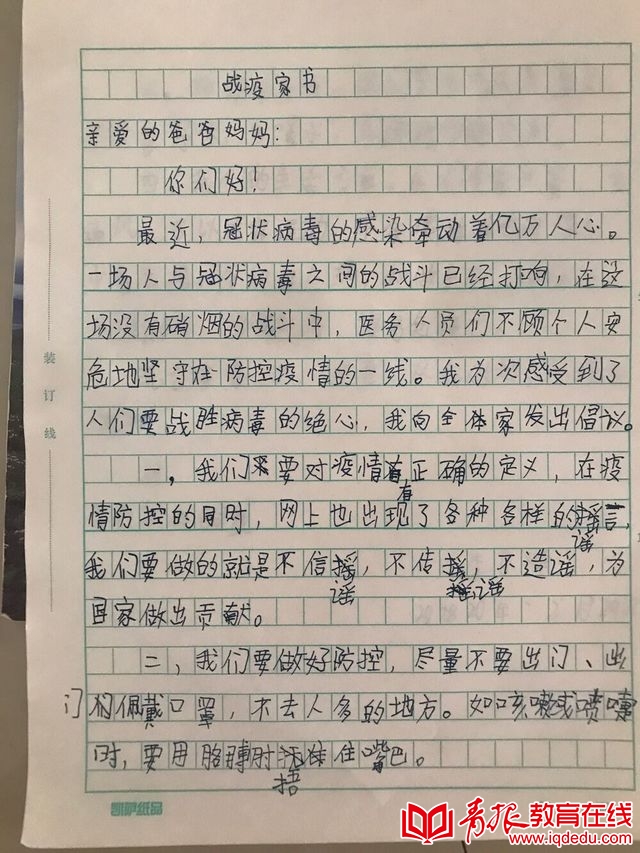 战疫家书
亲爱的爸爸妈妈:
你们好!
最近,冠状病毒的感染牵动着亿万人心。
一场人与冠状病毒之间的战斗已经打响,在这
场没有硝烟的战斗中,医务人员们不顾个人安
危地坚守在防控疫情的一线。我为次感受到了
人们要战胜病毒的绝心,我向全体家发出倡议。
一,我们要对疫情有正确的定义,在疫
情防控的同时,网上也出现了各种各样的谣言,
我们要做的就是不信谣,不传谣,不造谣,为
国家做出贡献。
二,我们要做好防控,尽量不要出门、出
门佩戴口罩,不去人多的地方。如咳嗽或喷嚏
时,要用胳膊肘捂住嘴巴。
装订线
凯萨纸品
青报教育在线
www.iqdedu.com